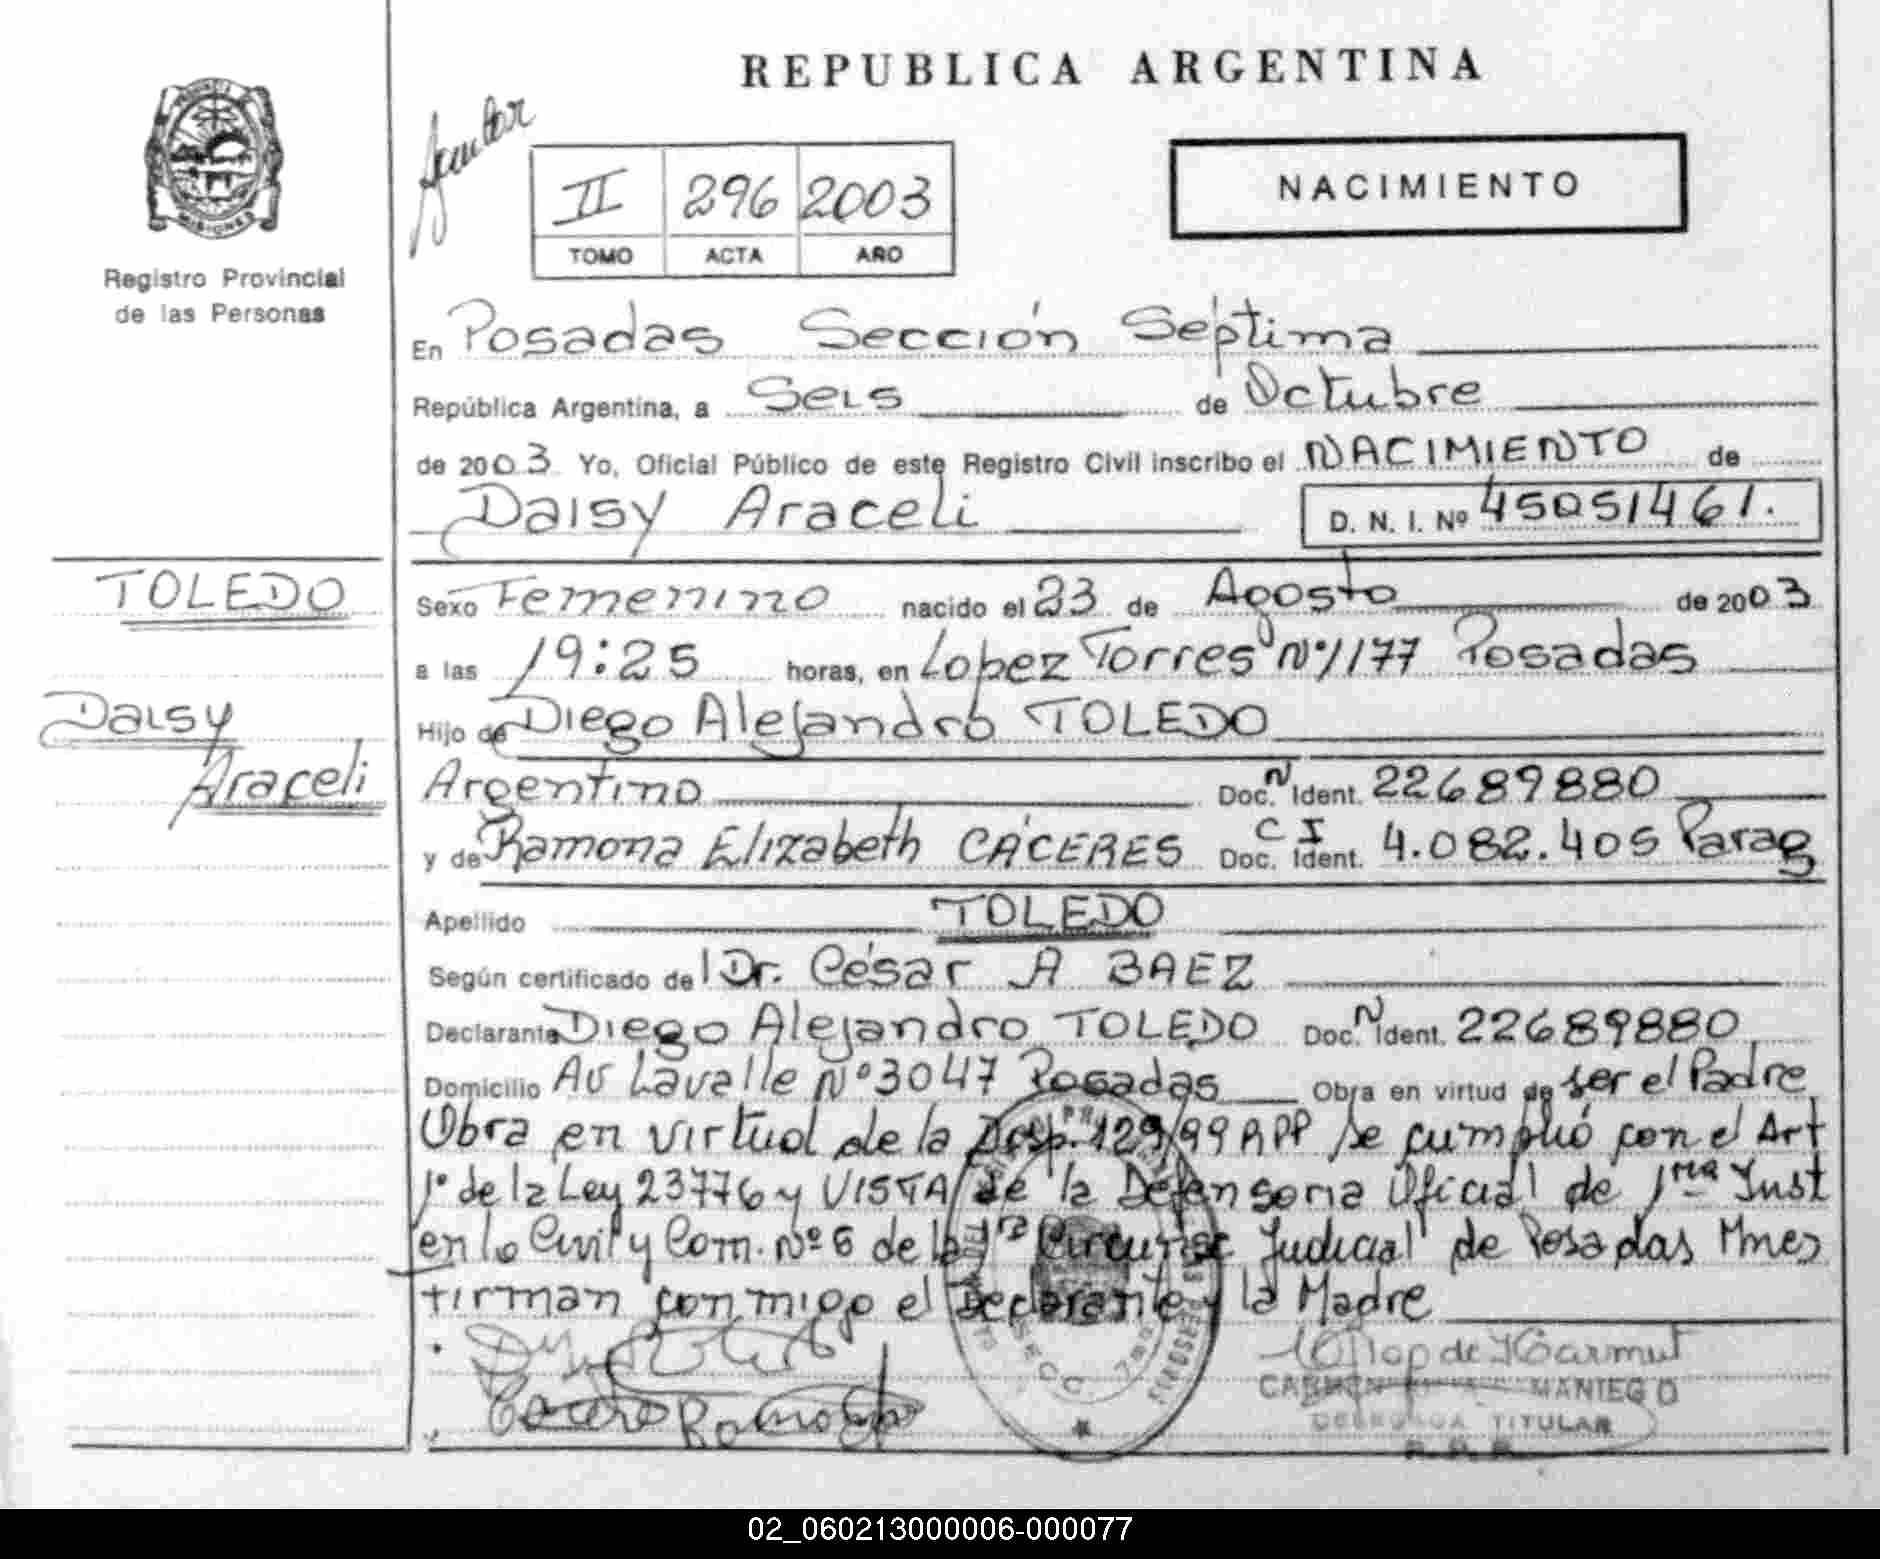 REPUBLICA ARGENTINA
Registro Provincial
de las Personas
MISIONES
II 296 2003
TOMO ACTA AÑO
NACIMIENTO
En Posadas Sección Séptima
República Argentina, a Seis de Octubre
de 2003 Yo, Oficial Público de este Registro Civil inscribo el NACIMIENTO de
Daisy Araceli D. N. I. Nº 45051461.
TOLEDO
Daisy
Araceli
Sexo Femenino nacido el 23 de Agosto de 2003
a las 19:25 horas, en Lopez Torres Nº 1177 Posadas
Hijo de Diego Alejandro TOLEDO
Argentino Doc. N Ident. 22689880
y de Ramona Elizabeth CÁCERES C I Doc. Ident. 4.082.405 Parag
Apellido TOLEDO
Según certificado de Dr. César A BAEZ
Declarante Diego Alejandro TOLEDO Doc. N Ident. 22689880
Domicilio Av Lavalle Nº 3047 Posadas Obra en virtud de ser el Padre
Obra en virtud de la Disp. 129/99 RPP se cumplió con el Art
1º de la Ley 23776 y VISTA de la Defensoria Oficial de 1ra Inst
en lo Civil y Com. Nº 6 de la 1ra Circunsc Judicial de Posadas Mnes
firman conmigo el Declarante y la Madre
CARMEN MANIEGO
DELEGADA TITULAR
02_060213000006-000077